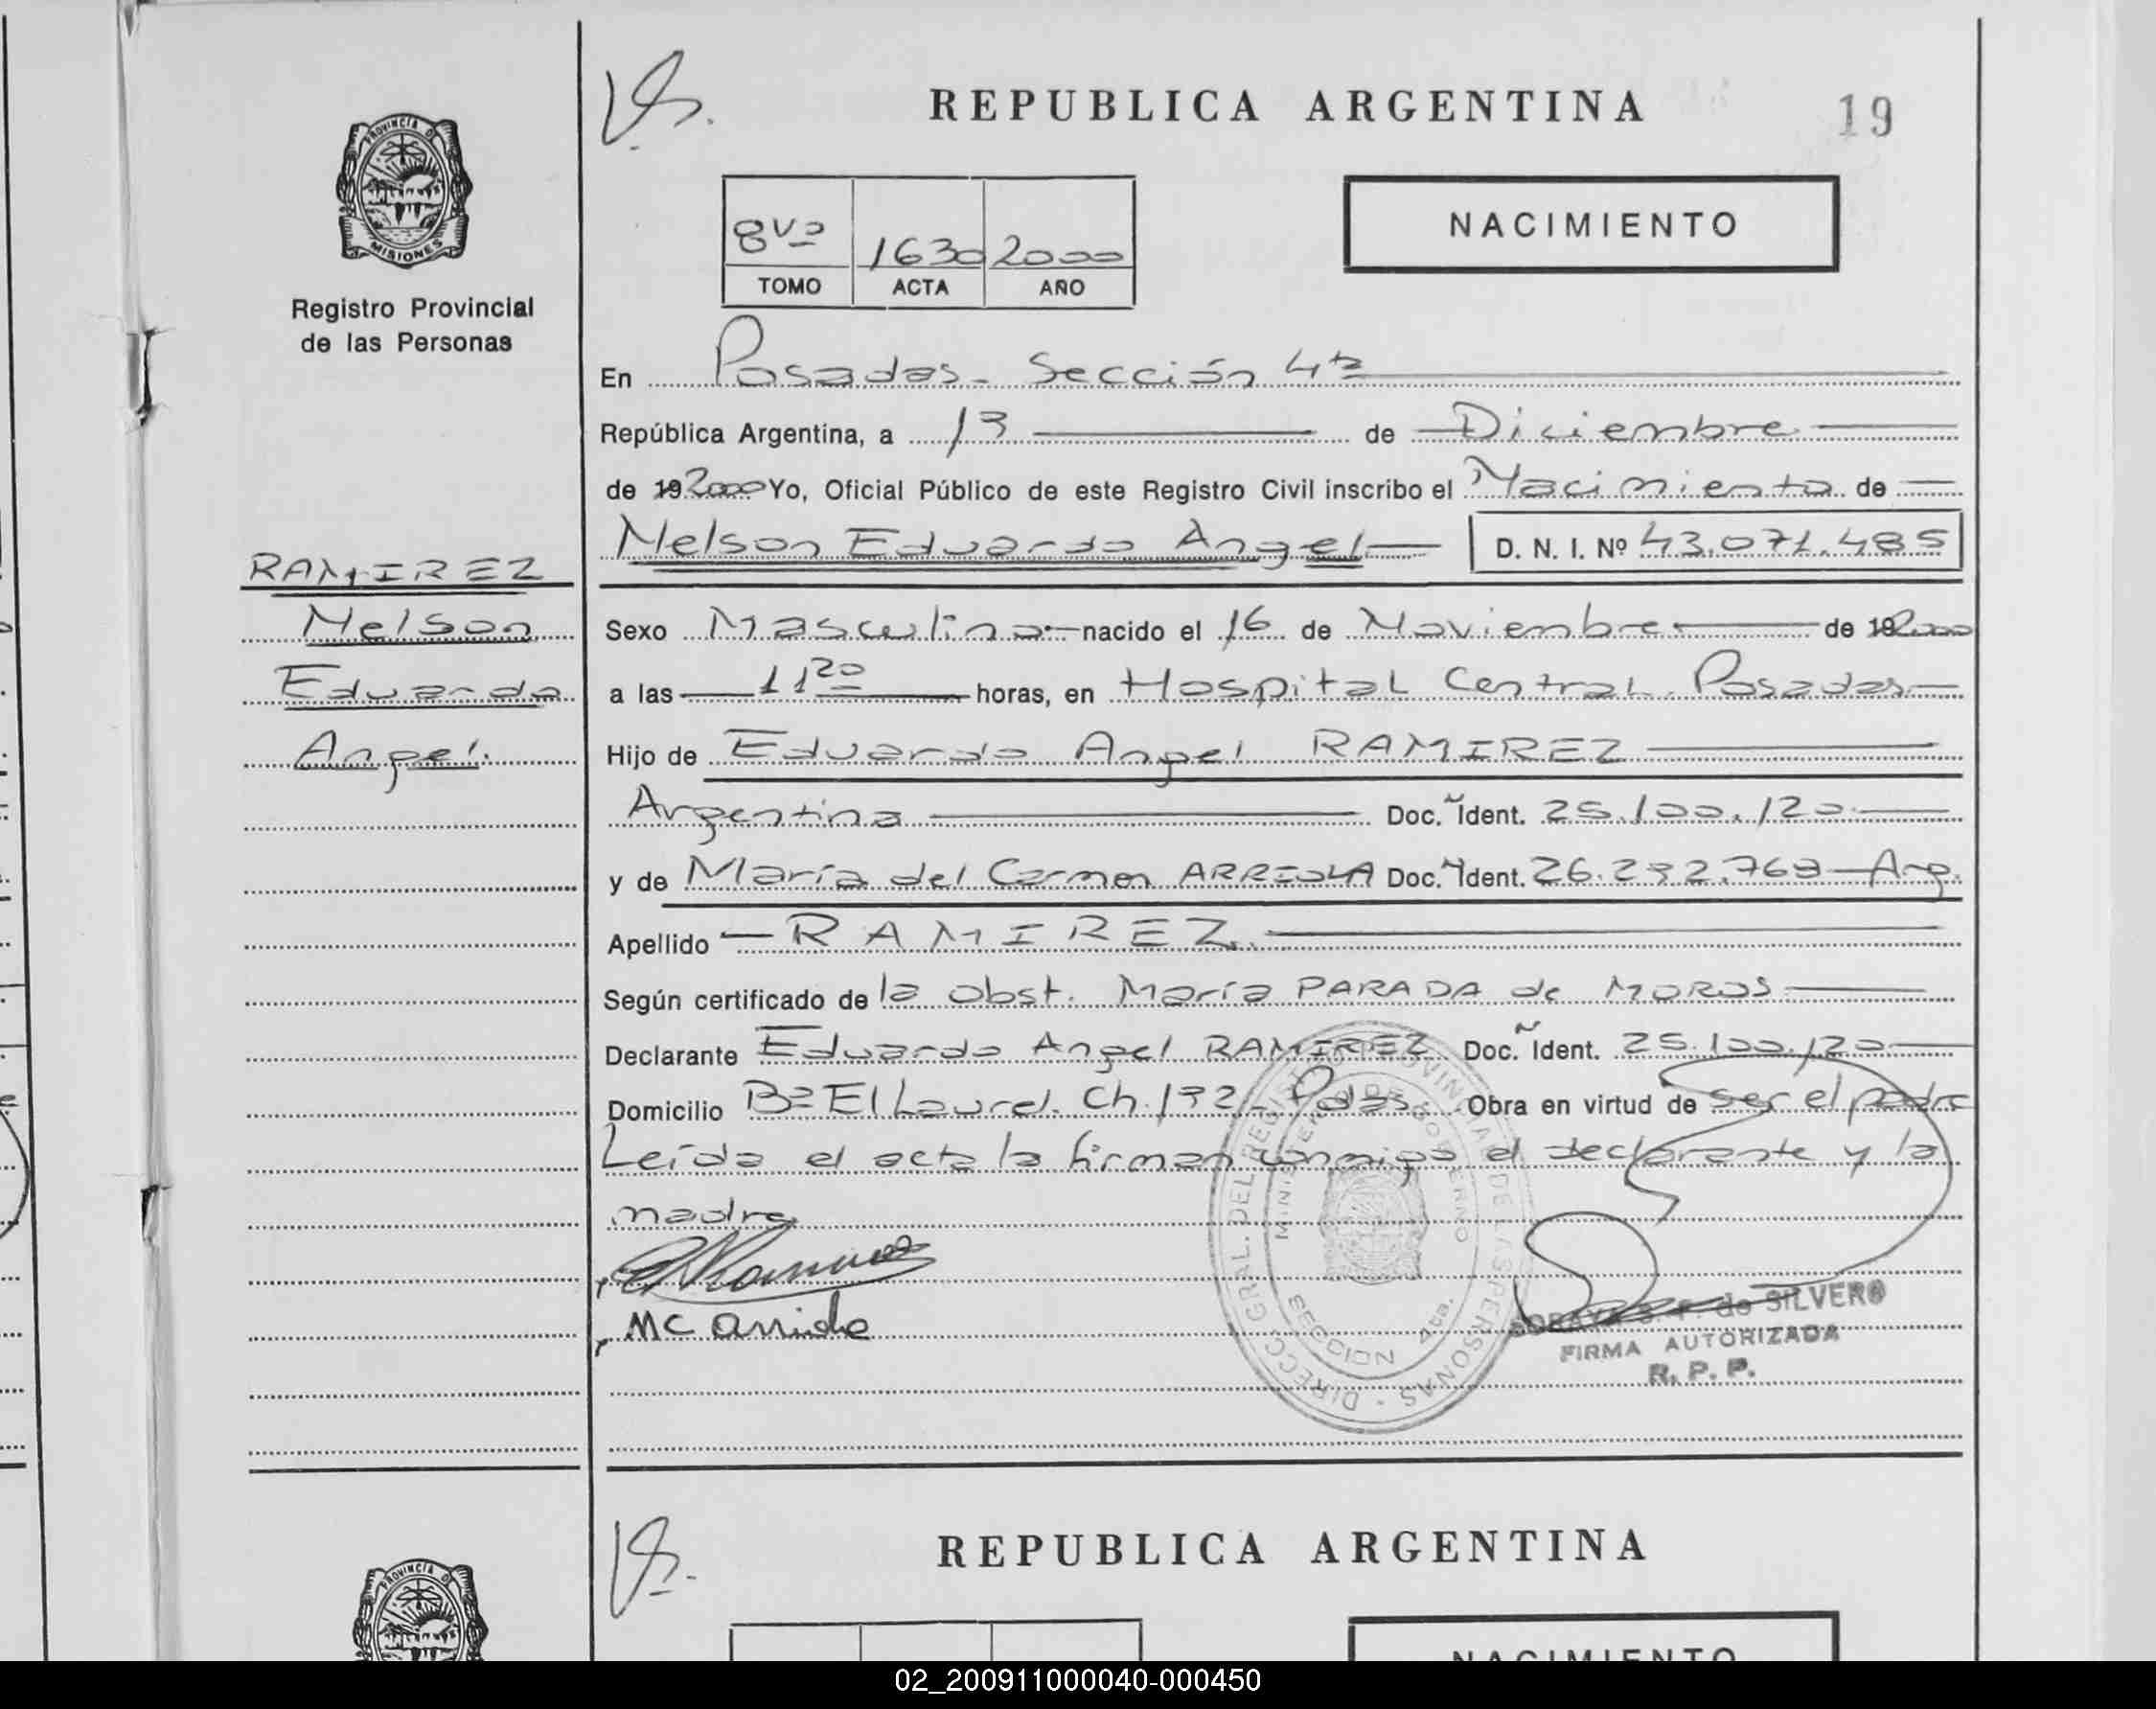 REPUBLICA ARGENTINA
19
NACIMIENTO
8vo 1630 2000
TOMO ACTA AÑO
PROVINCIA D
MISIONES
Registro Provincial
de las Personas
En Posadas - Sección 4ta
República Argentina, a 13 de Diciembre
de 19 2000 Yo, Oficial Público de este Registro Civil inscribo el Nacimiento de
Nelson Eduardo Angel D. N. I. Nº 43.071.485
RAMIREZ
Nelson
Eduardo
Angel.
Sexo Masculino nacido el 16 de Noviembre de 19 2000
a las 11 20 horas, en Hospital Central. Posadas
Hijo de Eduardo Angel RAMIREZ
Argentina Doc. Ident. 25.100.120
y de María del Carmen ARRIOLA Doc. Ident. 26.232.769 Arg.
Apellido RAMIREZ
Según certificado de la obst. María PARADA de MOROS
Declarante Eduardo Angel RAMIREZ Doc. Ident. 25.100.120
Domicilio Bº El Laurel. Ch. 132 - Pdas. Obra en virtud de ser el padre
Leída el acta la firman conmigo el declarante y la
madre
MC Arriola
DIRECC GRAL. DEL REGISTRO PROVINCIAL DE LAS PERSONAS
MINISTERIO DE GOBIERNO
SECCION 4ta.
de SILVERO
FIRMA AUTORIZADA
R. P. P.
REPUBLICA ARGENTINA
PROVINCIA D
NACIMIENTO
02_200911000040-000450